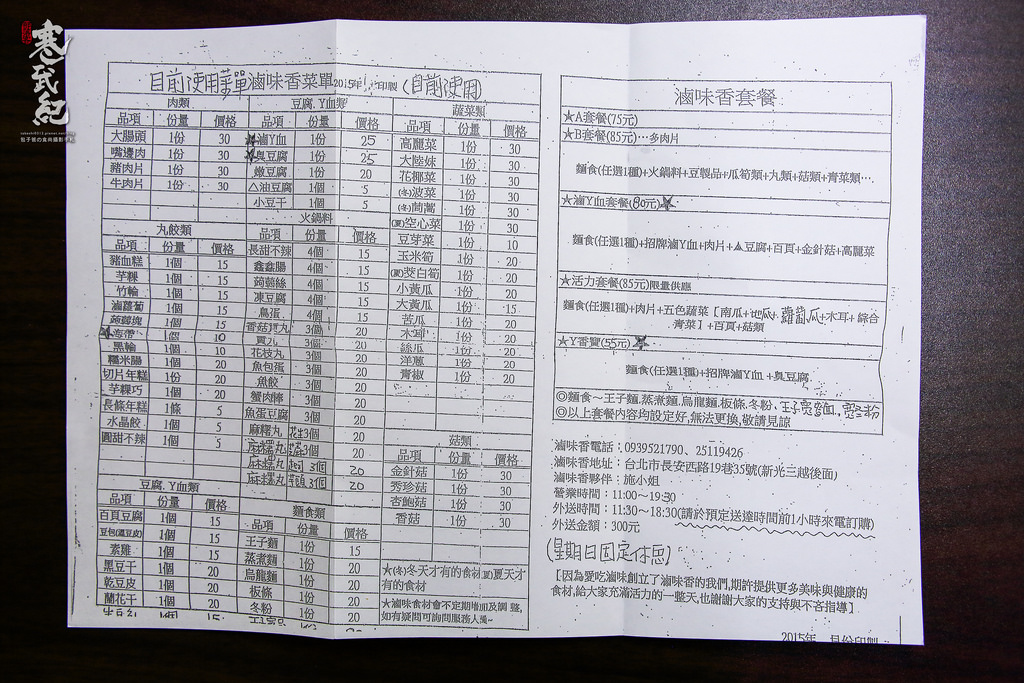 寒武紀
目前使用菜單滷味香菜單2015年 印製(目前使用)
肉類
品項 份量 價格
大腸頭 1份 30
嘴邊肉 1份 30
豬肉片 1份 30
牛肉片 1份 30
丸餃類
品項 份量 價格
豬血糕 1個 15
芋粿 1個 15
竹輪 1個 15
滷蘿蔔 1個 15
蒟蒻塊 1個 15
★海帶 1個 10
黑輪 1個 10
糯米腸 1個 20
切片年糕 1份 20
芋粿巧 1個 20
長條年糕 1條 5
水晶餃 1個 5
圓甜不辣 1個 5
豆腐.Y血類
品項 份量 價格
百頁豆腐 1個 15
豆包(濕豆皮) 1個 15
素雞 1個 15
黑豆干 1個 20
乾豆皮 1個 20
蘭花干 1個 20
1個 15
豆腐.Y血類
品項 份量 價格
★滷Y血 1份 25
★臭豆腐 1份 25
嫩豆腐 1份 20
△油豆腐 1個 5
小豆干 1個 5
火鍋料
品項 份量 價格
長甜不辣 4個 15
鑫鑫腸 4個 15
蒟蒻絲 4個 15
凍豆腐 4個 15
鳥蛋 4個 15
香菇貢丸 3個 20
貢丸 3個 20
花枝丸 3個 20
魚包蛋 3個 20
魚餃 3個 20
蟹肉條 3個 20
魚蛋豆腐 3個 20
麻糬丸 花生3個 20
麻糬丸 3個 20
麻糬丸 3個 20
麻糬丸 芋頭3個 20
麵食類
品項 份量 價格
王子麵 1份 15
蒸煮麵 1份 20
烏龍麵 1份 20
板條 1份 20
冬粉 1份 20
蔬菜類
品項 份量 價格
高麗菜 1份 30
大陸妹 1份 30
花椰菜 1份 30
(冬)菠菜 1份 30
(冬)茼蒿 1份 30
(夏)空心菜 1份 30
豆芽菜 1份 10
玉米筍 1份 20
(夏)茭白筍 1份 20
小黃瓜 1份 20
大黃瓜 1份 15
苦瓜 1份 20
木耳 1份 20
絲瓜 1份 20
洋蔥 1份 20
青椒 1份 20
菇類
品項 份量 價格
金針菇 1份 30
秀珍菇 1份 30
杏鮑菇 1份 30
香菇 1份 30
★(冬)冬天才有的食材,(夏)夏天才
有的食材
★滷味食材會不定期增加及調 整,
如有疑問可詢問服務人員~
滷味香套餐
★A套餐(75元)
★B套餐(85元)…多肉片
麵食(任選1種)+火鍋料+豆製品+瓜筍類+丸類+菇類+青菜類…
★滷Y血套餐(80元)★
麵食(任選1種)+招牌滷Y血+肉片+▲豆腐+百頁+金針菇+高麗菜
★活力套餐(85元)限量供應
麵食(任選1種)+肉片+五色蔬菜［南瓜+地瓜+ +木耳+綜合
青菜］+百頁+菇類
★Y香寶(55元)★
麵食(任選1種)+招牌滷Y血 +臭豆腐
◎麵食～王子麵.蒸煮麵.烏龍麵.板條.冬粉.王子寬麵,寬粉
◎以上套餐內容均設定好,無法更換,敬請見諒
滷味香電話：0939521790、25119426
滷味香地址：台北市長安西路19巷35號(新光三越後面)
滷味香夥伴：施小姐
營業時間：11:00～19:30
外送時間：11:30～18:30(請於預定送達時間前1小時來電訂購)
外送金額：300元
(星期日固定休息)
［因為愛吃滷味創立了滷味香的我們,期許提供更多美味與健康的
食材,給大家充滿活力的一整天,也謝謝大家的支持與不吝指導］
2015年 月份印製